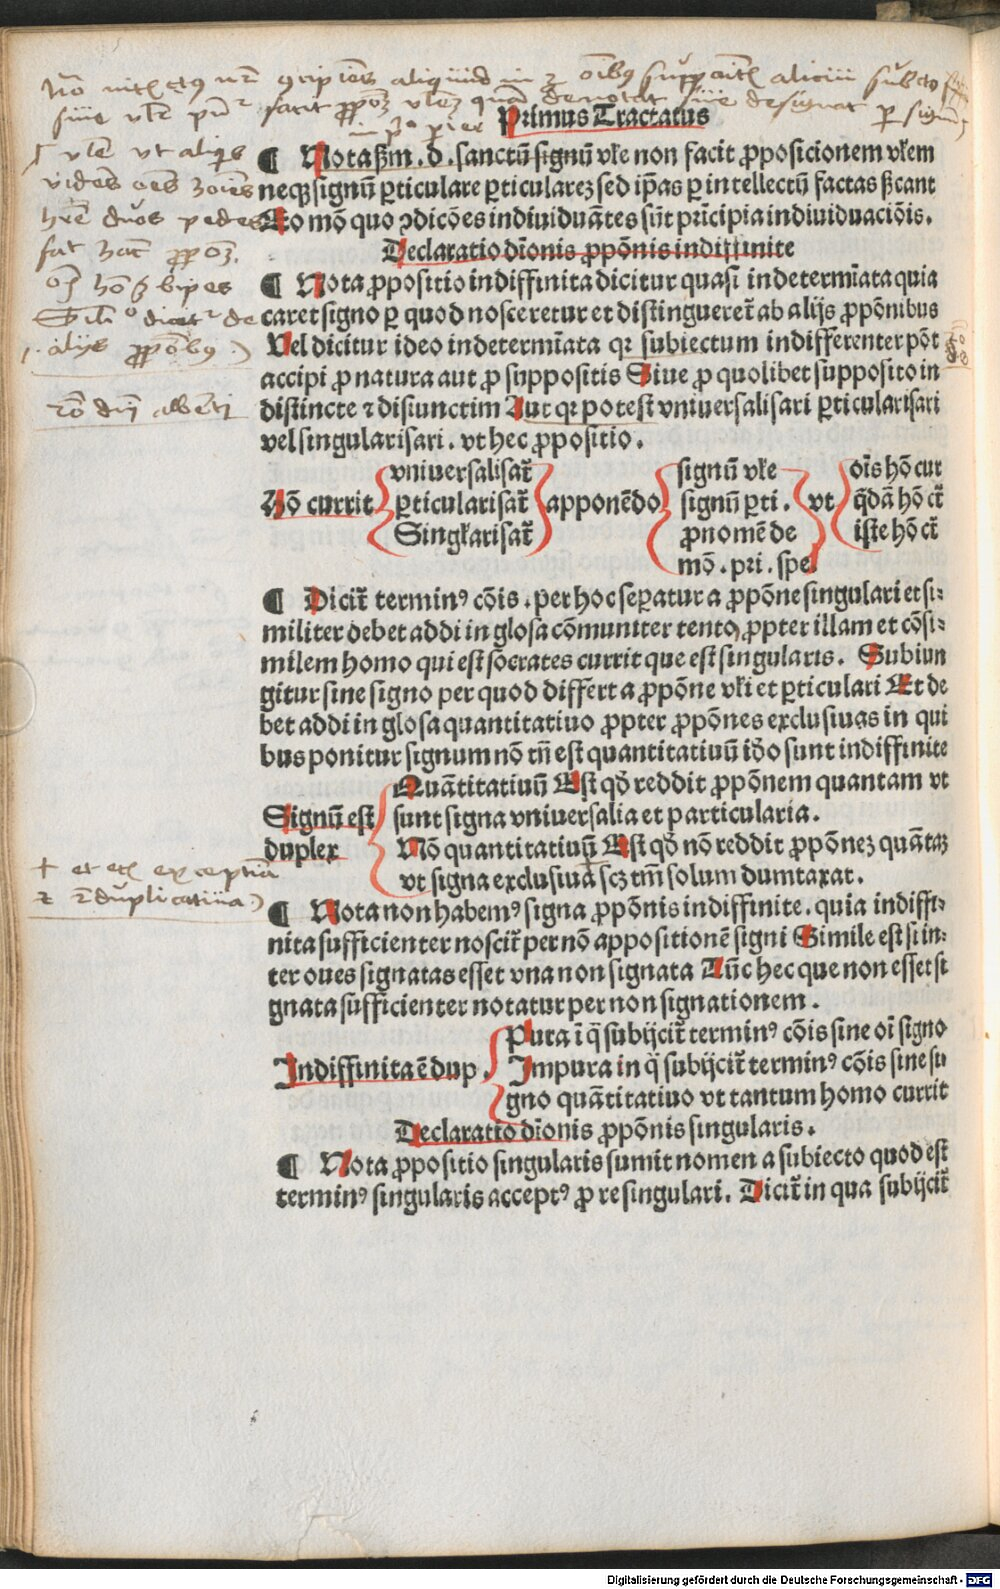 Primus Tractatus
¶ Nota ßm .d. sanctū signū vl̄e non facit ꝓposicionem vl̄em
neqꝫ signū ꝑticulare ꝑticulareꝫ sed ip̄as ꝑ intellectū factas sꝫcant
Eo mō quo ↄdicōes indiuiduātes sūt prīcipia indiuiduaciōis.
Declaratio dīonis ꝓpōnis indiffinite
¶ Nota ꝓpositio indiffinita dicitur quasi indetermīata quia
caret signo ꝑ quod nosceretur et distingueret᷑ ab alijs ꝓpōnibus
Vel dicitur ideo indetermīata qꝛ subiectum indifferenter pōt
accipi ꝓ natura aut ꝓ suppositis Siue ꝓ quolibet supposito in
distincte ⁊ disiunctim Aut qꝛ potest vniuersalisari ꝑticularisari
vel singularisari. vt hec ꝓpositio.
Hō currit vniuersalisat᷑ ꝑticularisat᷑ Singl'arisat᷑ apponēdo signū vl̄e signū ꝑti. ꝓnomē de mō. pri. spe vt oīs hō cur q̄dā hō ct᷑ iste hō ct᷑
¶ Dicit᷑ terminꝰ cōis. per hoc seꝑatur a ꝓpōne singulari et si⸗
militer debet addi in glosa cōmuniter tento ꝓpter illam et cōsi⸗
milem homo qui est socrates currit que est singularis. Subiun
gitur sine signo per quod differt a ꝓpōne vl̄i et ꝑticulari Et de
bet addi in glosa quantitatiuo ꝓpter ꝓpōnes exclusiuas in qui
bus ponitur signum nō tn̄ est quantitatiuū iḋo sunt indiffinite
Signū est duplex
Quātitatiuū Est qd̄ reddit ꝓpōnem quantam vt
sunt signa vniuersalia et particularia.
Nō quantitatiuū Est qd̄ nō reddit ꝓpōneꝫ quātaꝫ
vt signa exclusiua scꝫ tm̄ solum dumtaxat.
¶ Nota non habemꝰ signa ꝓpōnis indiffinite. quia indiffi⸗
nita sufficienter noscit᷑ per nō appositionē signi Simile est si in⸗
ter oues signatas esset vna non signata Tūc hec que non esset si
gnata sufficienter notatur per non signationem.
Indiffinita ē dup.
Pura ī q̄ subijcit᷑ terminꝰ cōis sine oī signo
Impura in q̄ subijcit᷑ terminꝰ cōis sine si
gno quātitatiuo vt tantum homo currit
Declaratio dīonis ꝓpōnis singularis.
¶ Nota ꝓpositio singularis sumit nomen a subiecto quod est
terminꝰ singularis acceptꝰ ꝓ re singulari. Dicit᷑ in qua subijcit᷑
vl̄e vt aliq̄s
videns oēs hoīes
hr̄e duos pedes
oīs hō ē bipes
+ et etiā exceptiua
⁊ reduplicatiua)
Digitalisierung gefördert durch die Deutsche Forschungsgemeinschaft - DFG